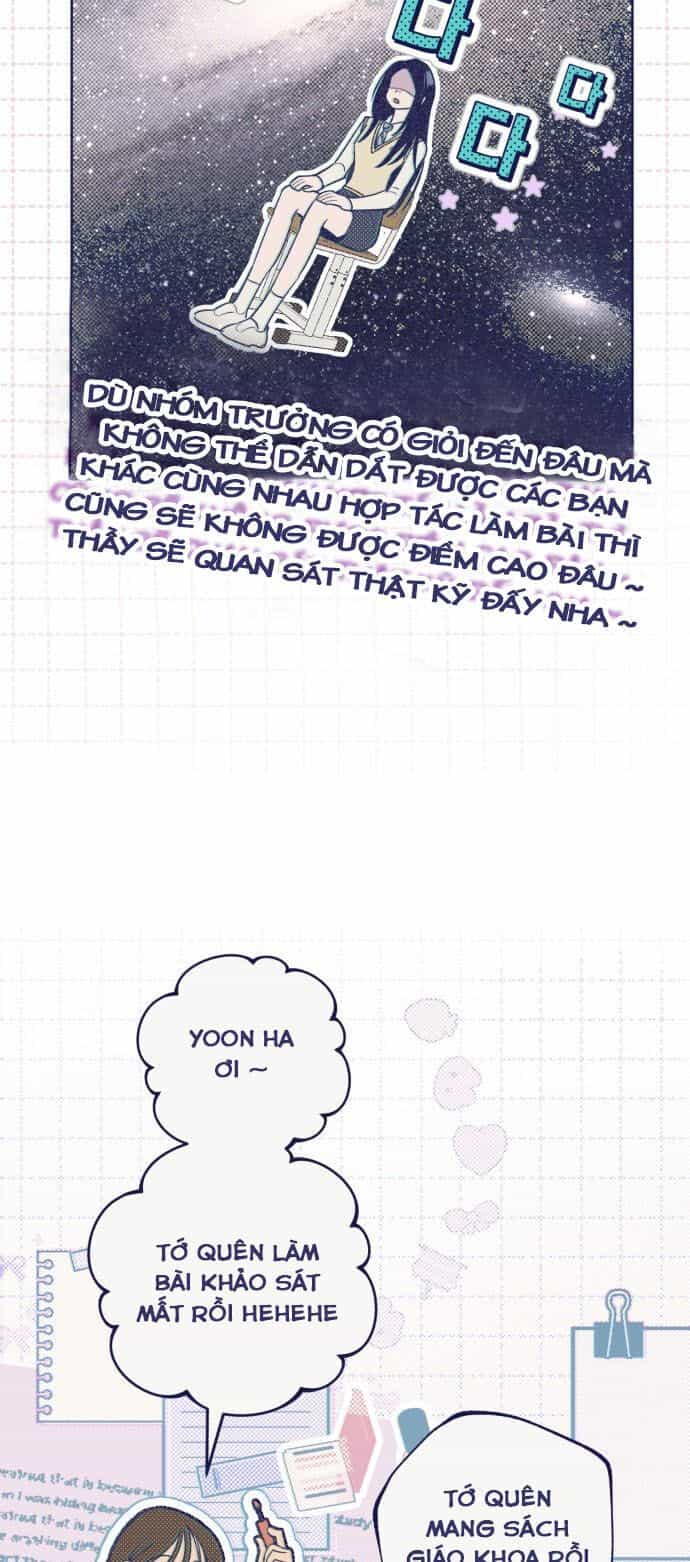 다
다
다
DÙ NHÓM TRƯỞNG CÓ GIỎI ĐẾN ĐÂU MÀ
KHÔNG THỂ DẪN DẮT ĐƯỢC CÁC BẠN
KHÁC CÙNG NHAU HỢP TÁC LÀM BÀI THÌ
CŨNG SẼ KHÔNG ĐƯỢC ĐIỂM CAO ĐÂU ~
THẦY SẼ QUAN SÁT THẬT KỸ ĐẤY NHA ~
YOON HA
ƠI ~
TỚ QUÊN LÀM
BÀI KHẢO SÁT
MẤT RỒI HEHEHE
TỚ QUÊN
MANG SÁCH
GIÁO KHOA RỒI